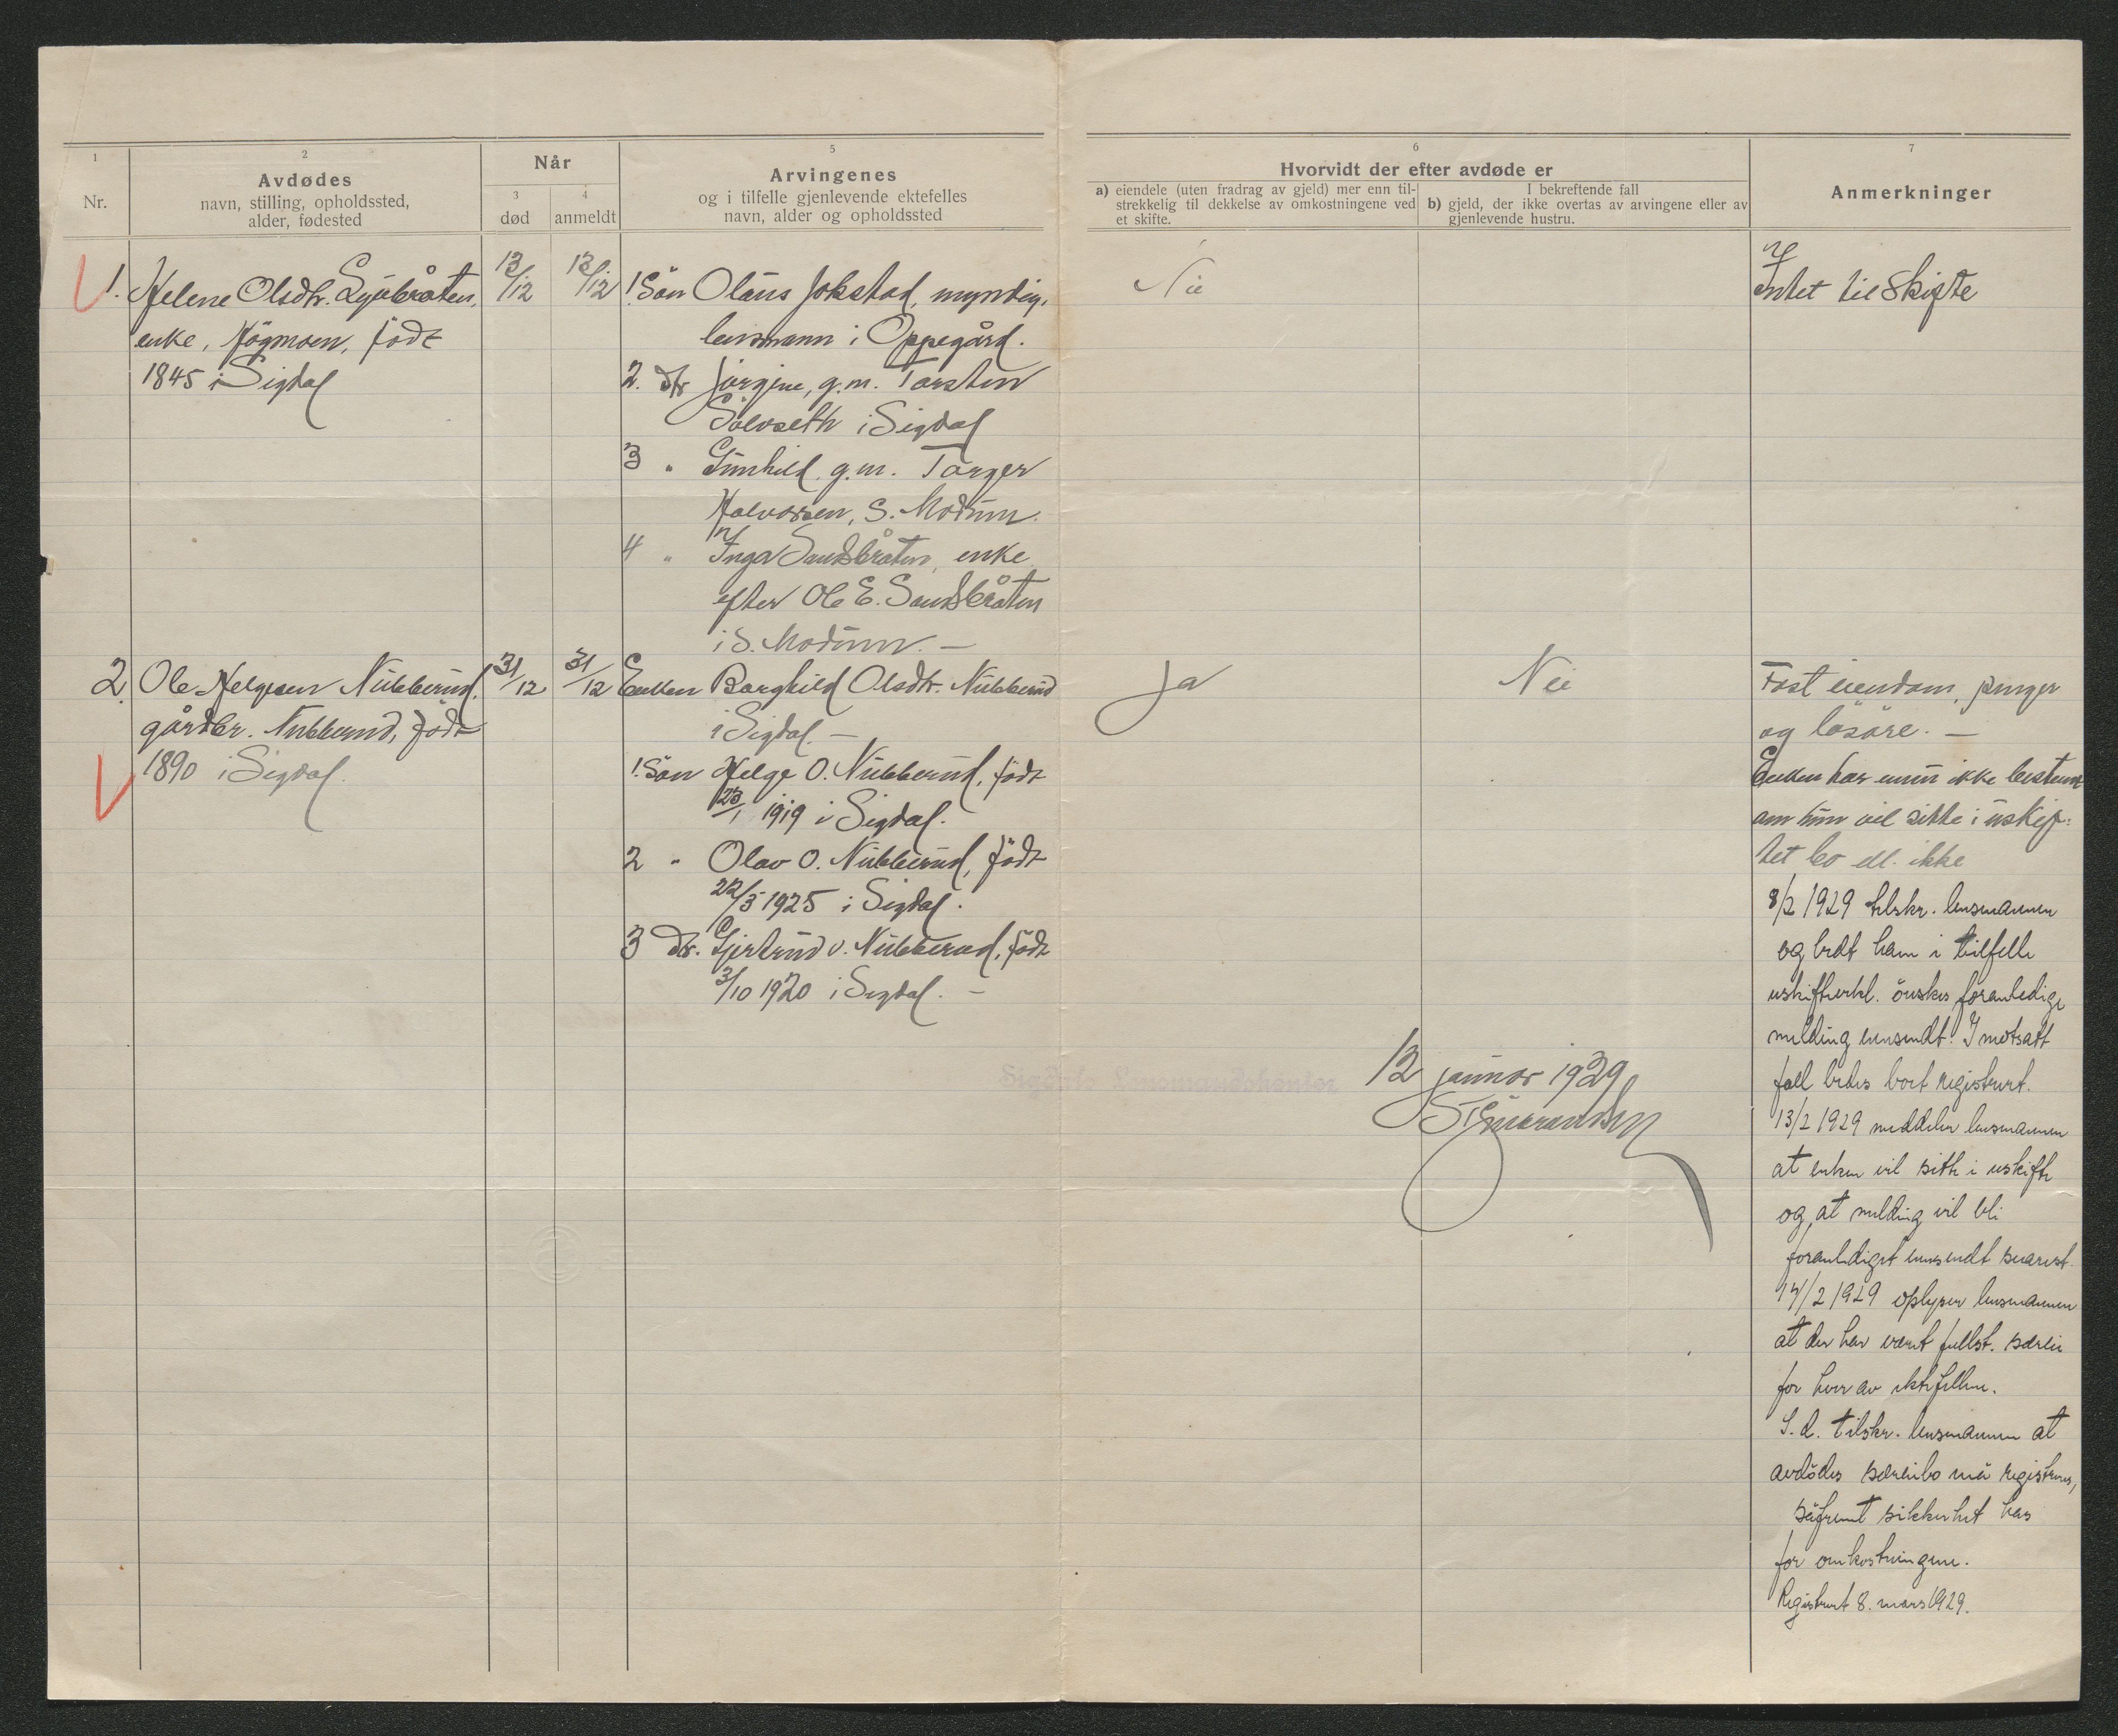 1
2
Når
5
6
7
Nr.
Avdødes
navn, stilling, opholdssted,
alder, fødested
3
død
4
anmeldt
Arvingenes
og i tilfelle gjenlevende ektefelles
navn, alder og opholdssted
Hvorvidt der efter avdøde er
a) eiendele (uten fradrag av gjeld) mer enn til-
strekkelig til dekkelse av omkostningene ved
et skifte.
I bekreftende fall
b) gjeld, der ikke overtas av arvingene eller av
gjenlevende hustru.
Anmerkninger
1.
Helene Olsdtr.
enke, Högmoen, född
1845 i Sigdal
13/12
13/12
1. Sön Olaus Jokstad, myndig,
lensmann i Oppegård.
2. dtr Jörgine, g.m. Torsten
Solvseth i Sigdal
3 " Gunhild g.m. Torger
Halvorsen, S. Modum.
4 " Inga Sandbråten, enke
efter Ole E. Sandbråten
i S. Modum. —
Nei
Intet til Skifte
2.
Ole Helgesen Nubberud,
gårdbr. Nubberud, född
1890 i Sigdal.
31/12
31/12
Enken Borghild Olsdtr. Nubberud
i Sigdal. —
1. Sön Helge O. Nubberud, född
23/1 1919 i Sigdal.
2 " Olav O. Nubberud, född
22/5 1925 i Sigdal.
3 dtr. Gjertrud O. Nubberud, född
3/10 1920 i Sigdal. —
Ja
Nei
Fast eiendom, penger
og lösöre. —
Enken har ennu ikke bestemt
om hun vil sitte i uskif-
tet bo ell. ikke
8/2 1929 tilskr. lensmannen
og bedt ham i tilfelle
uskifteerkl. önskes foranledige
melding innsendt. I motsatt
fall bedes boet registrert.
13/2 1929 meddeler lensmannen
at enken vil sitte i uskifte
og at melding vil bli
foranlediget innsendt snarest.
14/2 1929 oplyser lensmannen
at der har vært fullst. særeie
for hver av ektefellene.
S.d. tilskr. lensmannen at
avdödes særeiebo må registreres,
såfremt sikkerhet has
for omkostningene.
Registrert 8. mars 1929.
Sigdal Lensmandskontor
12 januar 1929